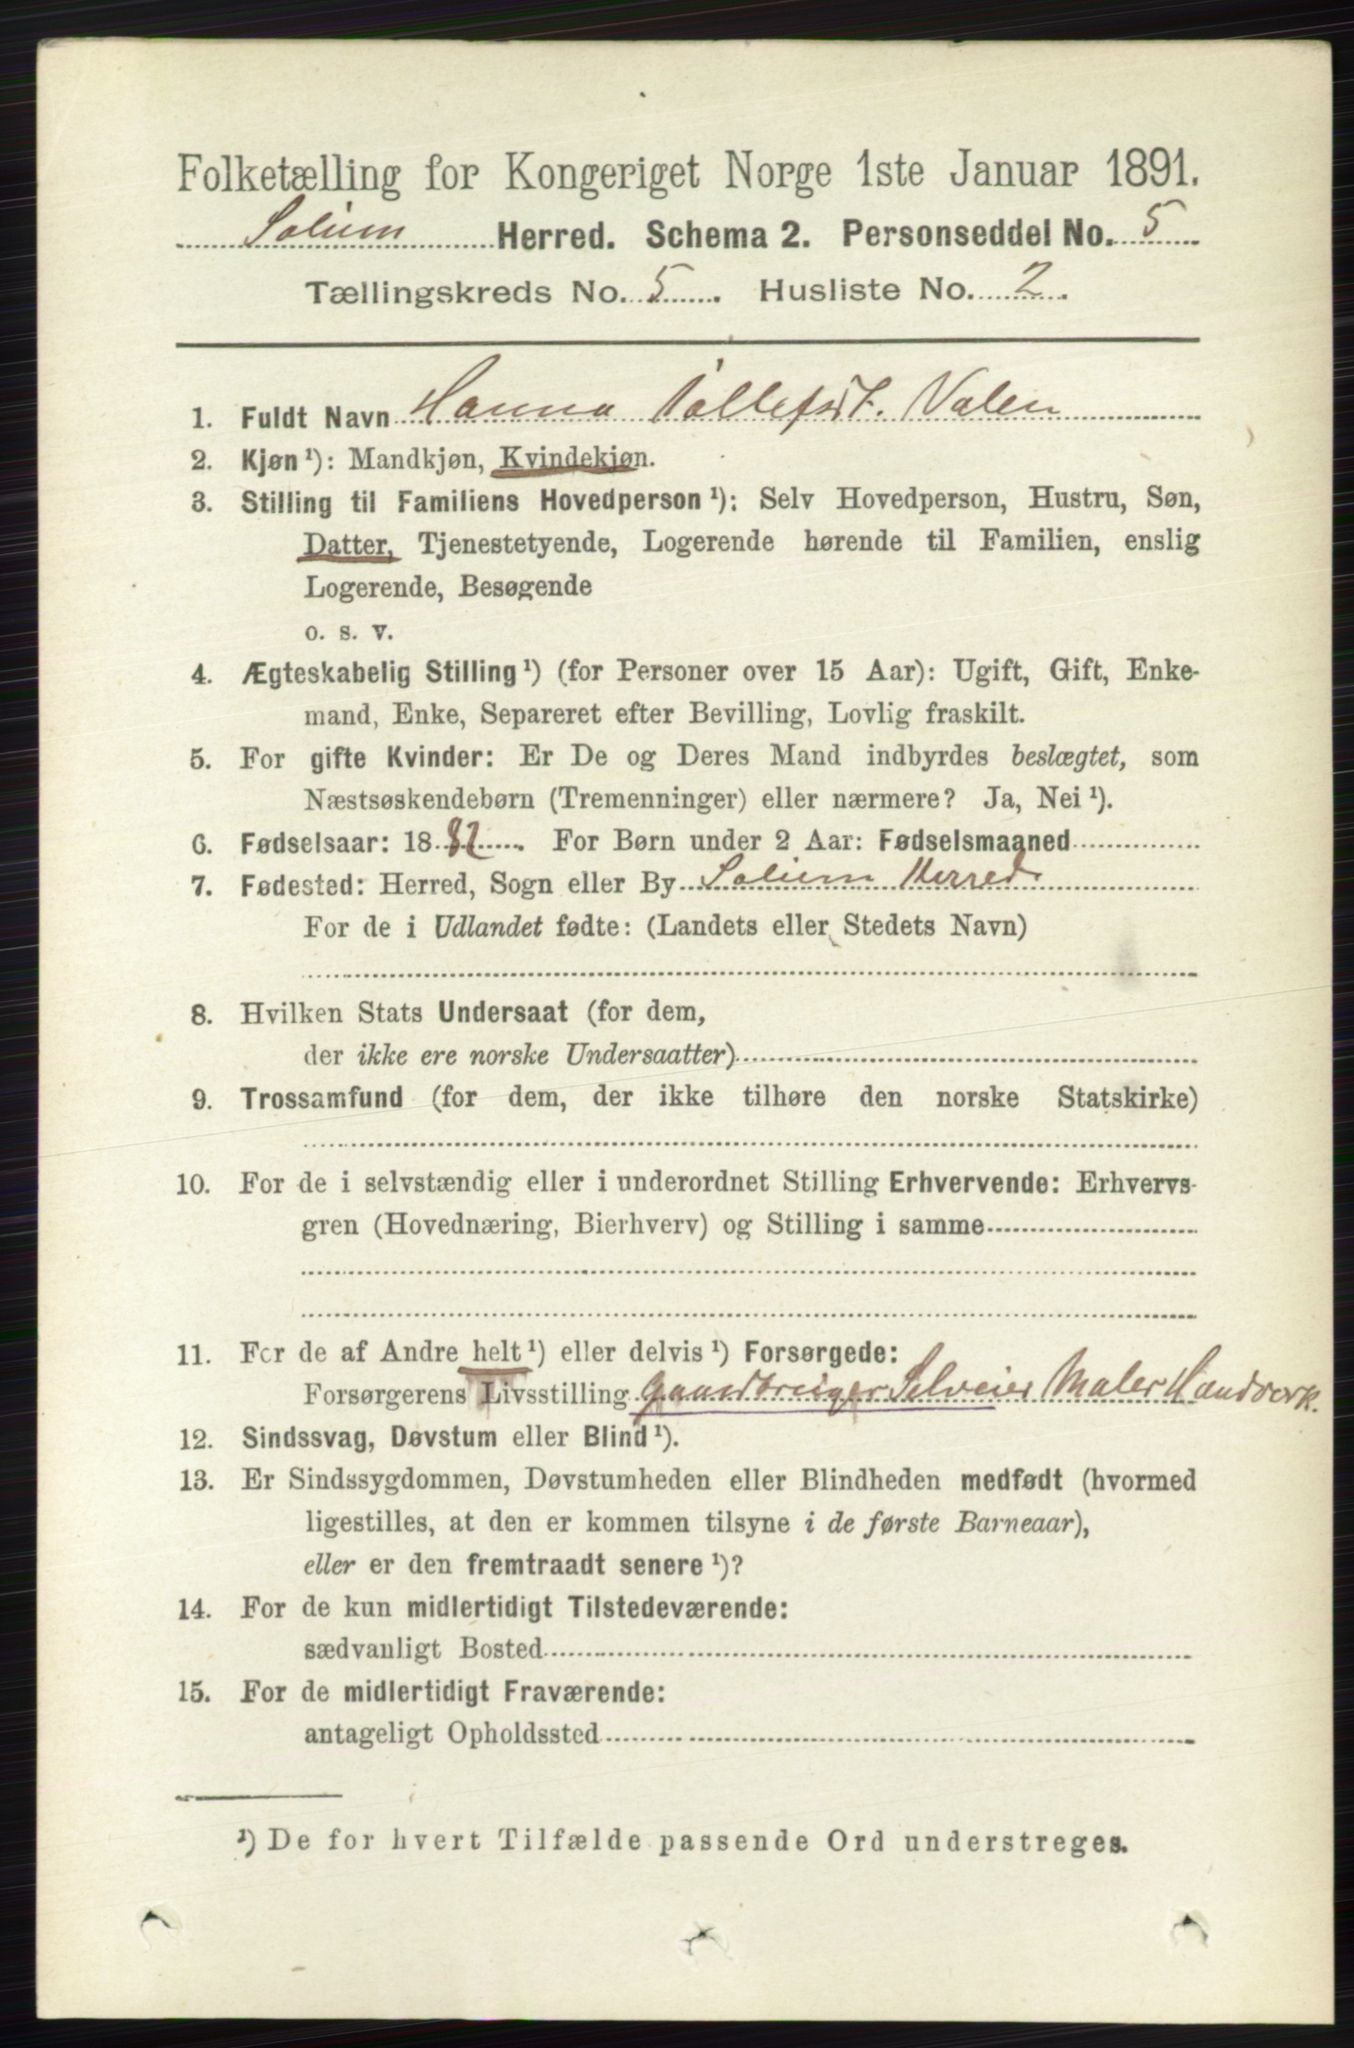 Folketælling for Kongeriget Norge 1ste Januar 1891.
Solum Herred. Schema 2. Personseddel No. 5
Tællingskreds No. 5. Husliste No. 2.
1. Fuldt Navn Hanna Tollefsdt. Valen
2. Kjøn ¹): Mandkjøn, Kvindekjøn.
3. Stilling til Familiens Hovedperson ¹): Selv Hovedperson, Hustru, Søn,
Datter, Tjenestetyende, Logerende hørende til Familien, enslig
Logerende, Besøgende
o. s. v.
4. Ægteskabelig Stilling ¹) (for Personer over 15 Aar): Ugift, Gift, Enke-
mand, Enke, Separeret efter Bevilling, Lovlig fraskilt.
5. For gifte Kvinder: Er De og Deres Mand indbyrdes beslægtet, som
Næstsøskendebørn (Tremenninger) eller nærmere? Ja, Nei ¹).
6. Fødselsaar: 1882. For Børn under 2 Aar: Fødselsmaaned
7. Fødested: Herred, Sogn eller By Solum Herred
For de i Udlandet fødte: (Landets eller Stedets Navn)
8. Hvilken Stats Undersaat (for dem,
der ikke ere norske Undersaatter)
9. Trossamfund (for dem, der ikke tilhøre den norske Statskirke)
10. For de i selvstændig eller i underordnet Stilling Erhvervende: Erhvervs-
gren (Hovednæring, Bierhverv) og Stilling i samme
11. For de af Andre helt ¹) eller delvis ¹) Forsørgede:
Forsørgerens Livsstilling Gaardbruger Selveier Maler Handverk.
12. Sindssvag, Døvstum eller Blind ¹).
13. Er Sindssygdommen, Døvstumheden eller Blindheden medfødt (hvormed
ligestilles, at den er kommen tilsyne i de første Barneaar),
eller er den fremtraadt senere ¹)?
14. For de kun midlertidigt Tilstedeværende:
sædvanligt Bosted
15. For de midlertidigt Fraværende:
antageligt Opholdssted
¹) De for hvert Tilfælde passende Ord understreges.